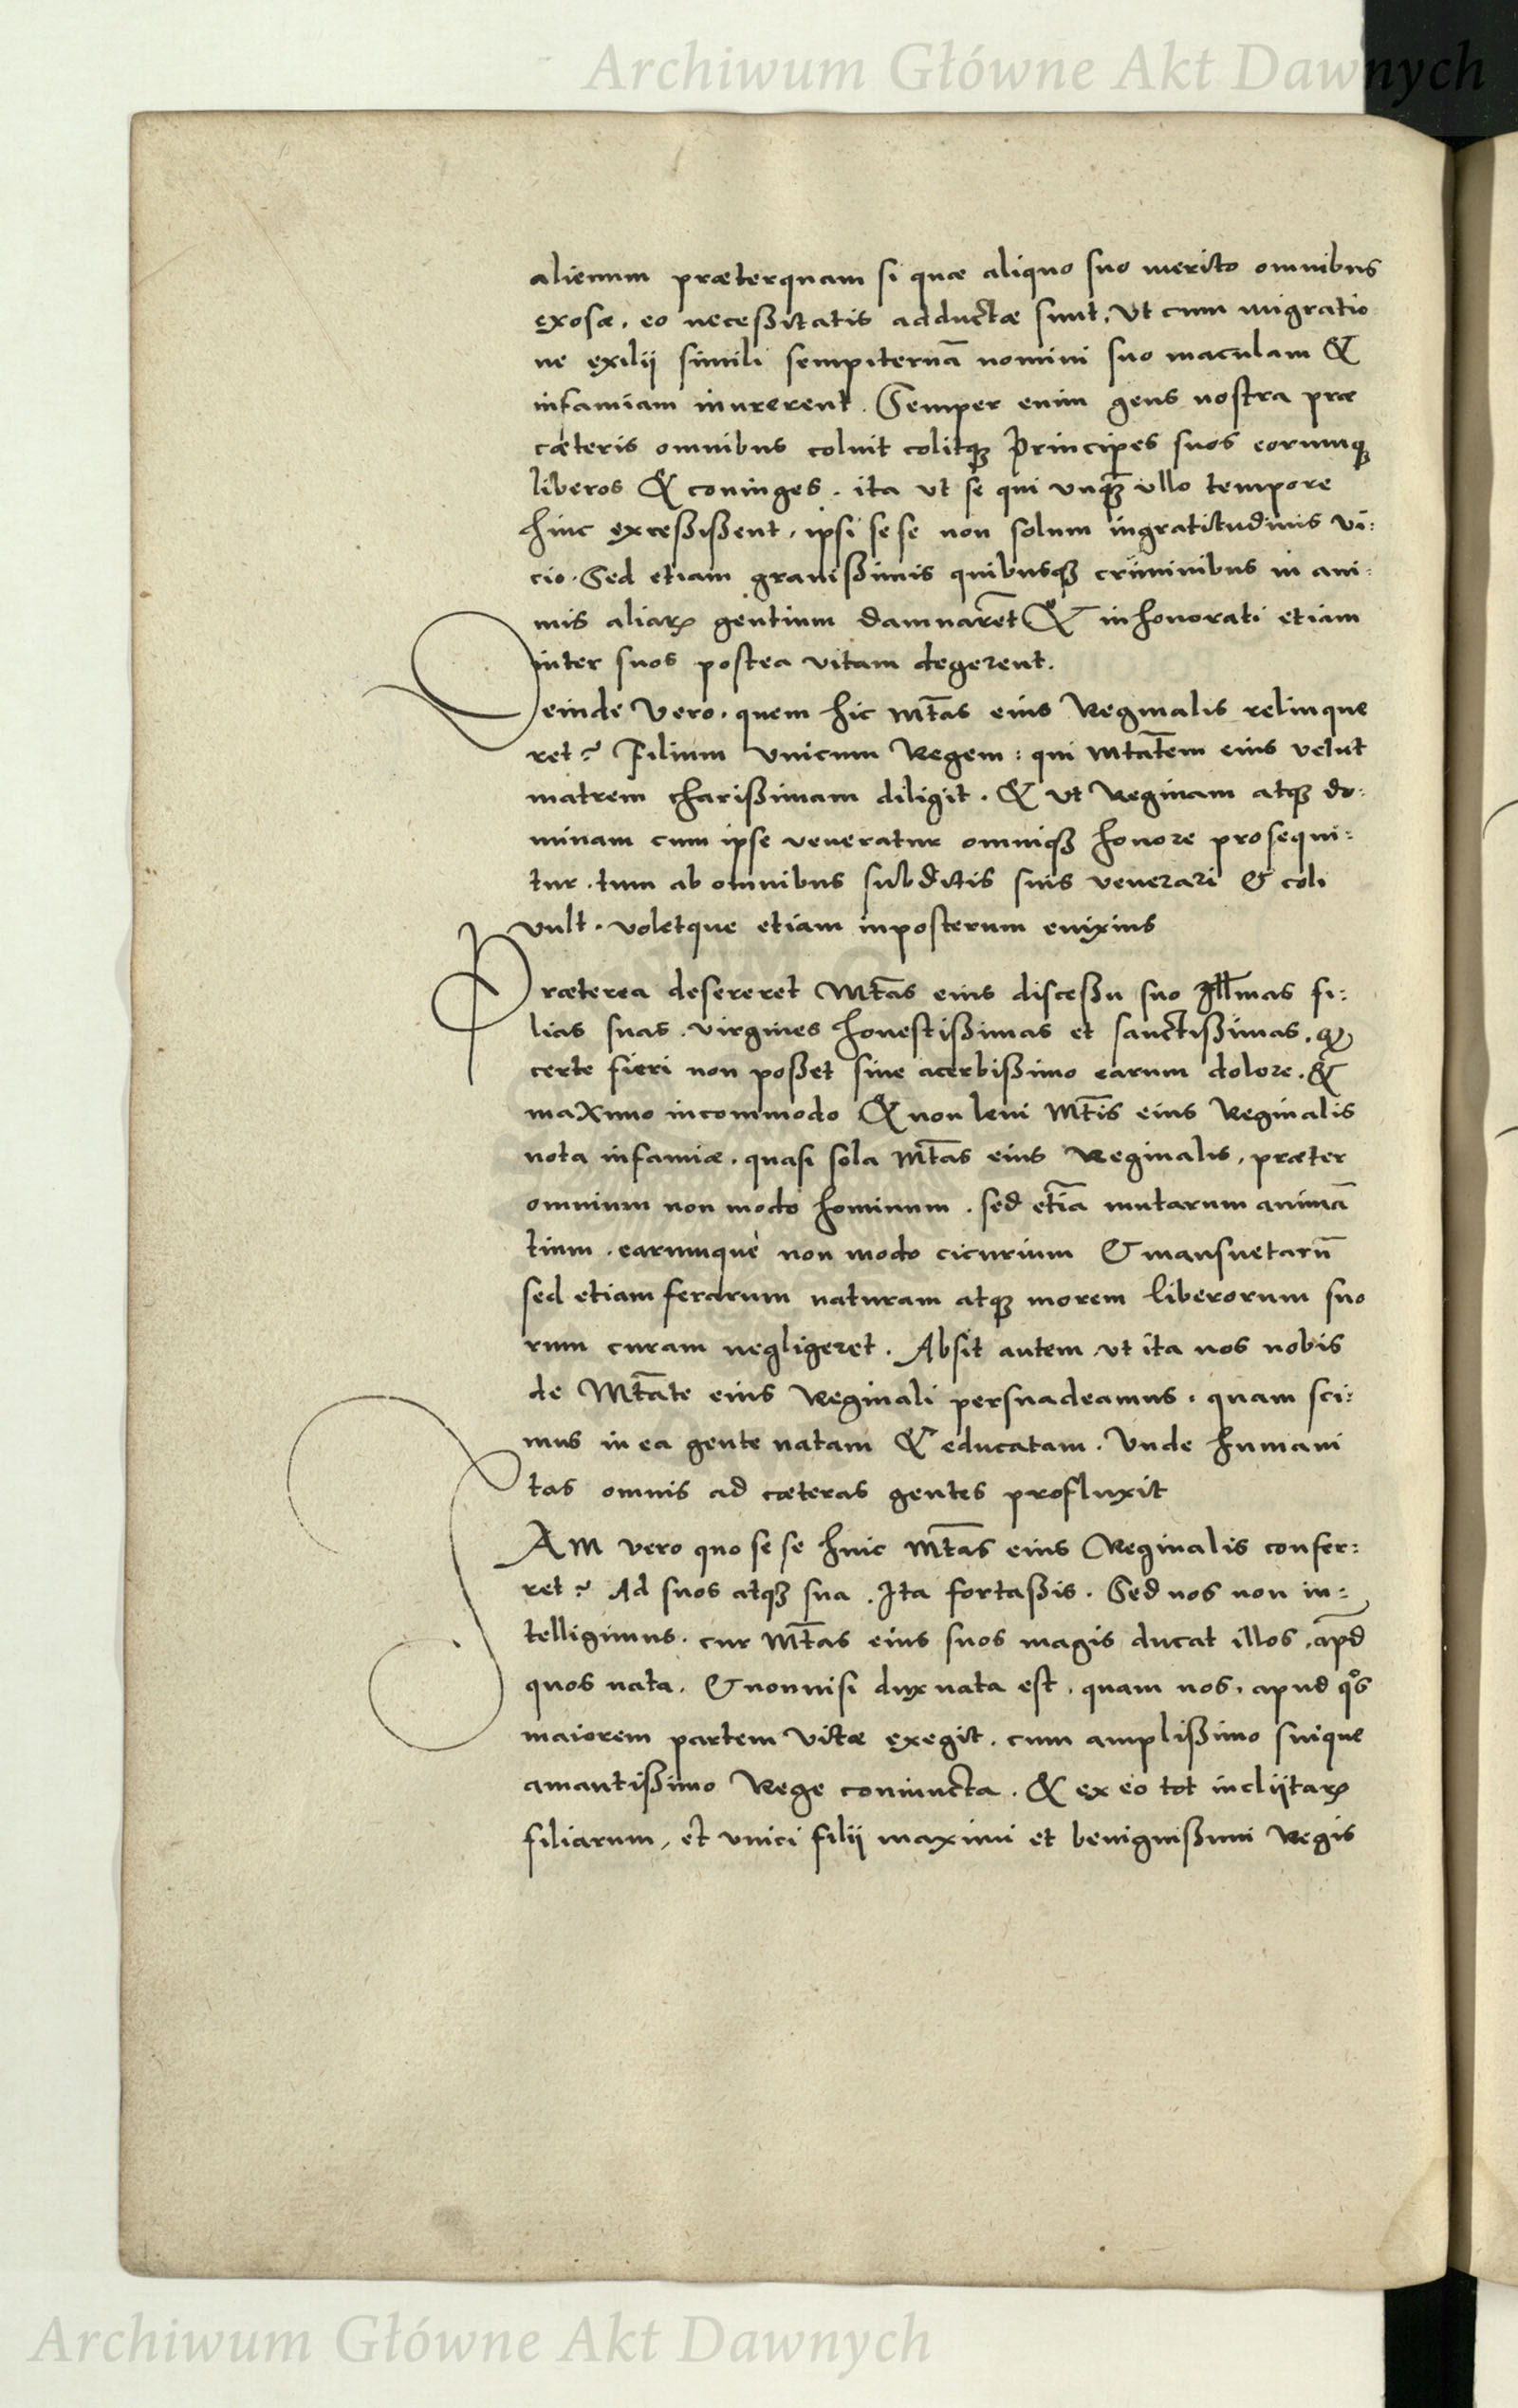 Archiwum Główne Akt Dawnych
alienum præterquam si quæ aliquo suo merito omnibus
exosæ. eo neceßitatis adductæ sunt. Ut cum migratio
ne exilij simili sempiternā nomini suo maculam &
infamiam inurerent. Semper enim gens nostra præ
cæteris omnibus coluit colitqȝ Principes suos eorumqȝ
liberos & coniuges. ita ut se qui unqȝ̄ ullo tempore
hinc exceßißent, ipsi se se non solum ingratitudinis vi:
cio. Sed etiam grauißimis quibusqȝ criminibus in ani:
mis aliaꝝ gentium damnarēt & inhonorati etiam
inter suos postea vitam degerent.
Deinde Vero. quem hic Mt̄as eius Reginalis relinque
ret? Filium Vnicum Regem: qui Mtāt̄em eius velut
matrem charißimam diligit. & Ut Reginam atqȝ do:
minam cum ipse veneratur omniqȝ honore prosequi:
tur. tum ab omnibus subditis suis venerari & coli
vult. voletque etiam inposterum enixius
Præterea desereret Mt̄as eius disceßu suo Jll̄mas fi:
lias suas. virgines honestißimas et sanctißimas. qȝ
certe fieri non poßet sine acerbißimo earum dolore. &
maximo incommodo & non leui Mt̄is eius Reginalis
nota infamiæ. quasi sola Mt̄as eius Reginalis, præter
omnium non modo hominum. sed etiā mutarum animā
tium. earumque non modo cicurium & mansuetarū
sed etiam ferarum naturam atqȝ morem liberorum suo
rum curam negligeret. Absit autem ut ita nos nobis
de Mt̄ate eius Reginali persuadeamus. quam sci:
mus in ea gente natam & educatam. Vnde humani
tas omnis ad cæteras gentes profluxit
JAM vero quo se se hinc Mt̄as eius Reginalis confer:
ret? Ad suos atqȝ sua. Ita fortaßis. Sed nos non in:
telligimus. cur Mt̄as eius suos magis ducat illos. ap̄d
quos nata. & nonnisi dux nata est. quam nos. apud qͦs
maiorem partem vitæ exegit. cum amplißimo suique
amantißimo Rege coniuncta. & ex eo tot inclijtaꝝ
filiarum, et vnici filij maximi et benignißimi Regis
Archiwum Główne Akt Dawnych